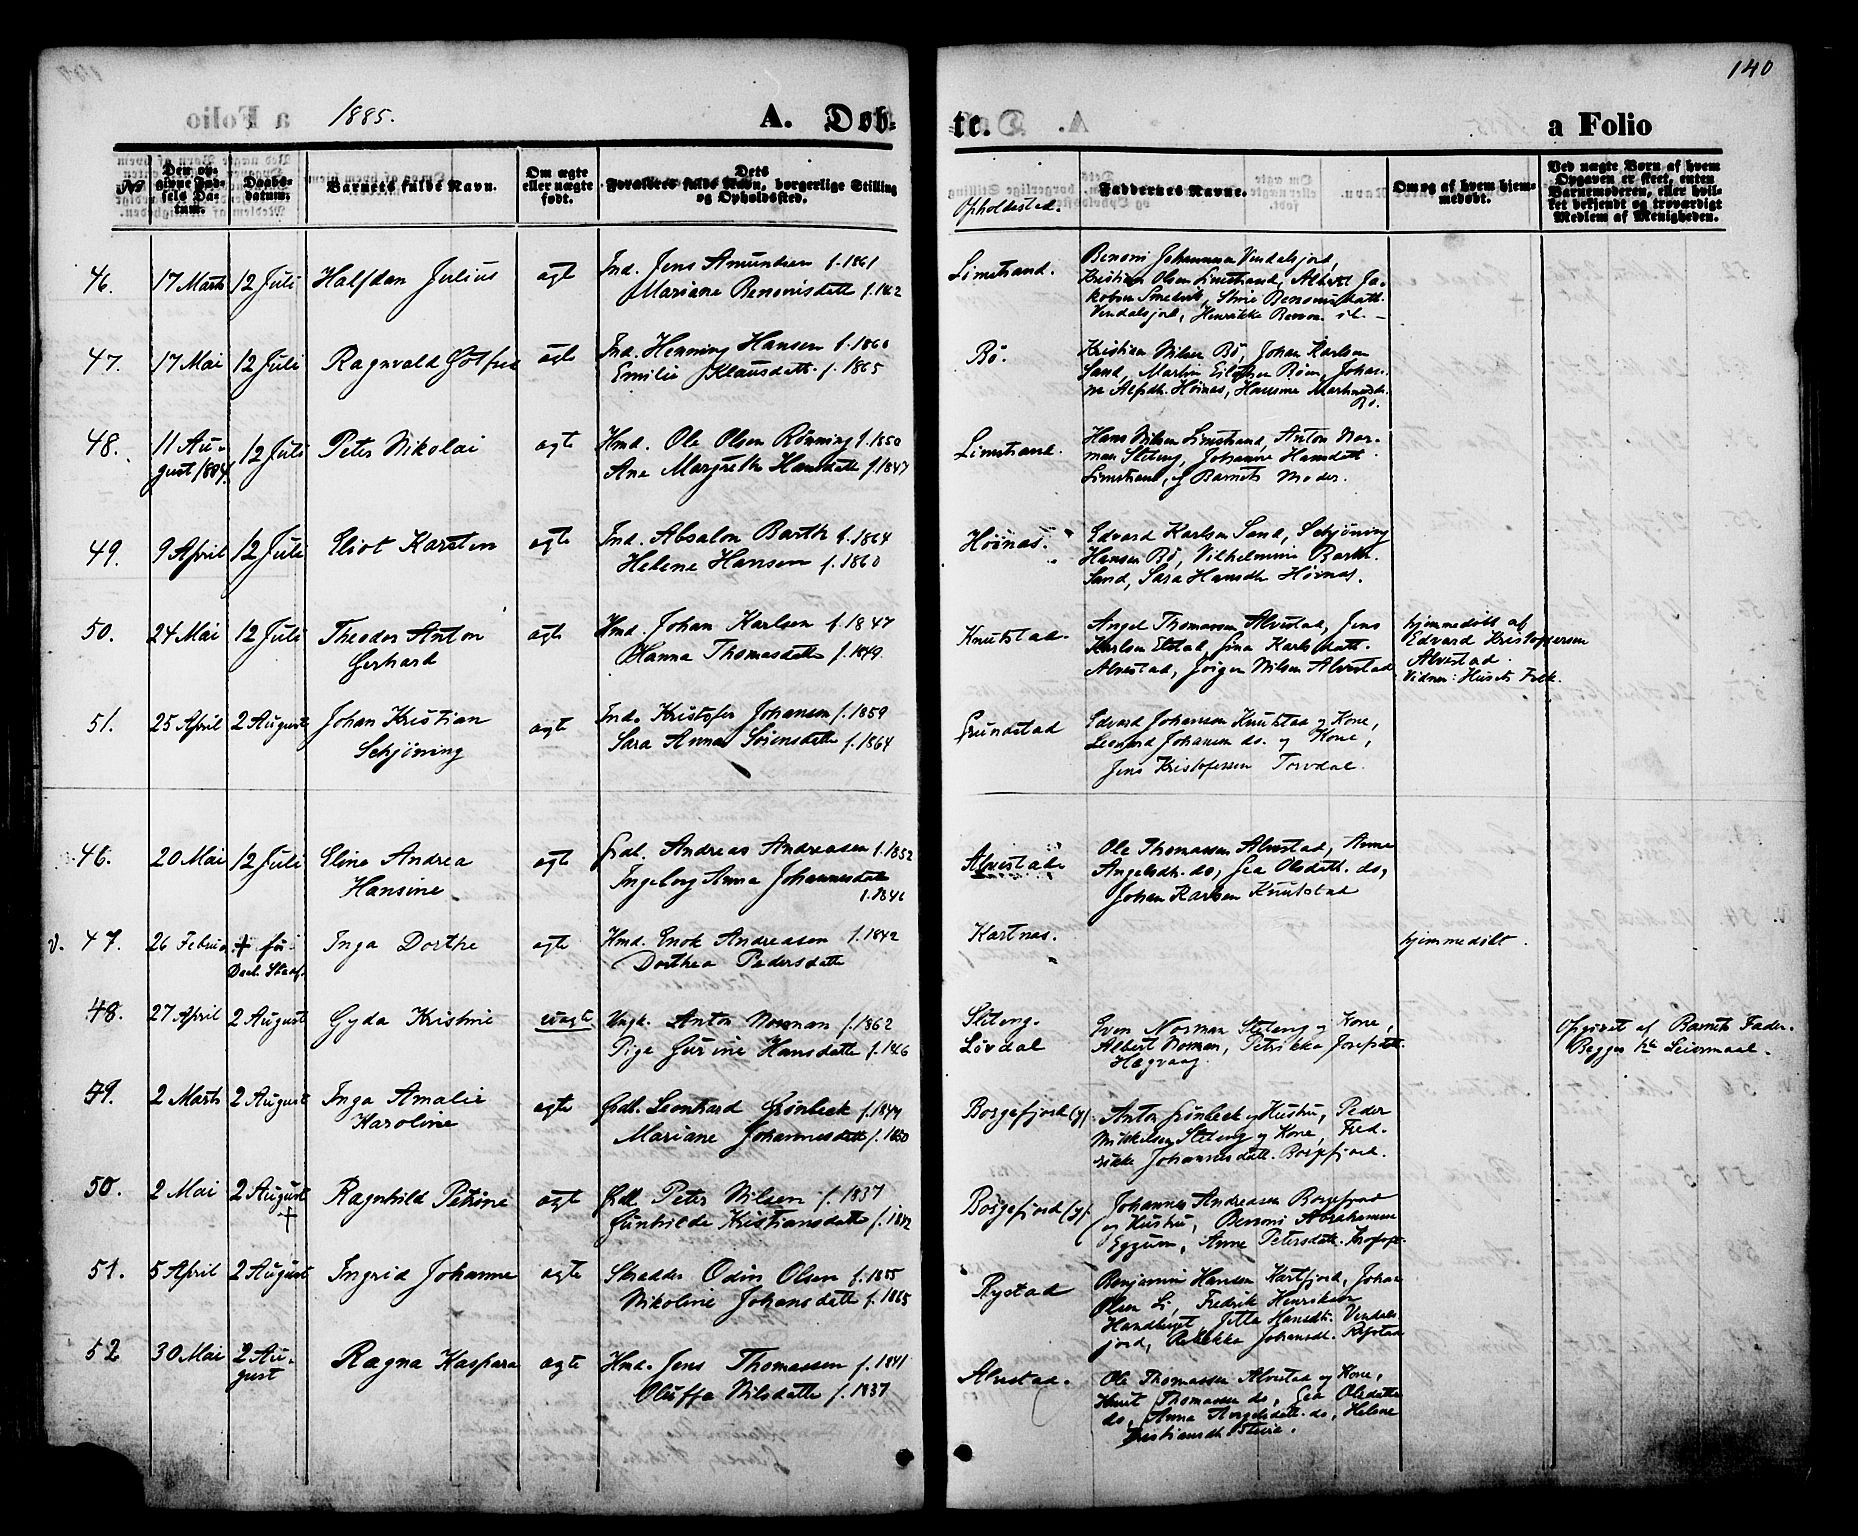 140
a Folio 1885. A. Døb-
te. a Folio
No.
Den op-
givne Fød-
sels Da-
tum.
Daabs-
datum.
Barnets fulde Navn.
Om ægte
eller uægte
født.
Dets
Forældres fulde Navn, borgerlige Stilling
og Opholdssted.
Opholdsstad.
Faddernes Navne.
Om og af hvem hjem-
medøbt.
Ved uægte Børn af hvem
Opgaven er skeet, enten
Barnemoderen, eller hvil-
ket bekjendt og troværdigt
Medlem af Menigheden.
46. 17 Marts 12 Juli Halfdan Julius ægte
Ind. Jens Amundsen f. 1861
Mariane Benonisdatt f. 1862
Limstrand.
Benoni Johannesen Vendalsjord,
Kristian Olsen Limstrand, Albert Ja-
kobsen Smedvik, Stine Benonisdatt.
Vendalsjord, Henrikke Benon
47. 17 Mai 12 Juli Ragnvald Gotfred ægte
Ind. Henning Hansen f. 1860
Emilie Klausdatt. f. 1865
Bø.
Kristian Nilsen Bø, Johan Karlsen
Sand, Martin Eilertsen Bøen, Johan-
ne Alfsdtr. Høinæs, Hansine Martinusdtr.
Bø.
48. 11 Au-
gust 1884. 12 Juli Peter Nikolai ægte
Hmd. Ole Olsen Rønning f. 1850
Ane Margrethe Hansdatt f. 1847
Limstrand.
Hans Nilsen Limstrand, Anton Nor-
man Steteng, Johanne Hansdatt.
Limstrand, og Barnets Moder.
49. 9 April 12 Juli Eliot Karsten ægte
Ind. Absalon Barth f. 1864
Helene Hansen f. 1860
Høinæs.
Edvard Karlsen Sand, Schjøning
Hansen Bø, Vilhelmine Barth
Sand, Sara Hansdtr Høinæs.
50. 24 Mai 12 Juli Theodor Anton
Gerhard ægte
Hmd. Johan Karlsen f. 1847
Hanna Thomasdatt f. 1849.
Knutstad.
Angel Thomassen Alvestad, Jens
Karlsen Elstad, Gina Karlsdatt.
Alvestad, Jørgen Nilsen Alvestad
hjemmedøbt af
Edvard Kristoffersen
Alvestad.
Vidner: Husets Folk.
51. 25 April 2 August Johan Kristian
Schjøning ægte
Ind. Kristofer Johansen f. 1859
Sara Anna Sørensdatt f. 1864
Grundstad
Edvard Johansen Knutstad og Kone,
Leonard Johansen do. og Kone,
Jens Kristofersen Torvdal.
46. 20 Mai 12 Juli Eline Andrea
Hansine ægte
Grdb. Andreas Andreasen f. 1852
Ingeborg Anna Johannesdatt
f. 1846
Alvestad.
Ole Thomassen Alvestad, Anne
Angelsdtr. do, Gea Olsdatt. do,
Johan Karlsen Knutstad
v. 47. 26 Februar + før
Daab Stadf. Inga Dorthe ægte
Hmd. Enok Andreasen f. 1842
Dorthea Pedersdatt
Kartnæs.
hjemmedøbt.
48. 27 April 2 August Gyda Kristine uægte
Ungk. Anton Norman f. 1862
Pige Gurine Hansdatt f. 186
Steteng.
Løvdal
Even Norman Steteng og Kone,
Albert Norman, Petrikka Josepsdatt.
Hagvaag.
Opgivet af Barnets Fader.
Begges 1ste Leiermaal.
49. 2 Marts 2 August Inga Amalie
Karoline ægte
Grdb. Leonhard Grønbeck f. 1847
Mariane Johannesdatt f. 1850
Borgefjord (y).
Anton Grønbeck og Hustru, Peder
Mikkelsen Steteng og Kone, Fred-
rikke Johannesdatt. Borgefjord.
50. 2 Mai 2 August
+ Ragnhild Petrine ægte
Grdb. Peter Nilsen f. 1837
Gunhilde Kristiansdatt f. 1842
Borgefjord (y).
Johannes Andreasen Borgefjord
og Hustru, Benoni Abrahamsen
Eggum, Anne Petersdatt.
51. 5 April 2 August Ingrid Johanne ægte
Skrædder Odin Olsen f. 1855
Nikoline Johansdatt f. 1865
Rystad
Benjamin Hansen Kartfjord, Johan
Olsen Li, Fredrik Henriksen
Handberget, Jetta Hansdt. Vendals-
jord, Rebekka Johansdt. Rystad
52 30 Mai 2 Au-
gust Ragna Kaspara ægte
Hmd. Jens Thomassen f. 1841
Oluffa Nilsdatt f. 1837
Alvestad.
Ole Thomassen Alvestad og Kone,
Knut Thomassen do, Gea Olsdatt
do, Anna Angelsdatt. do, Helene
Kristiansdt.